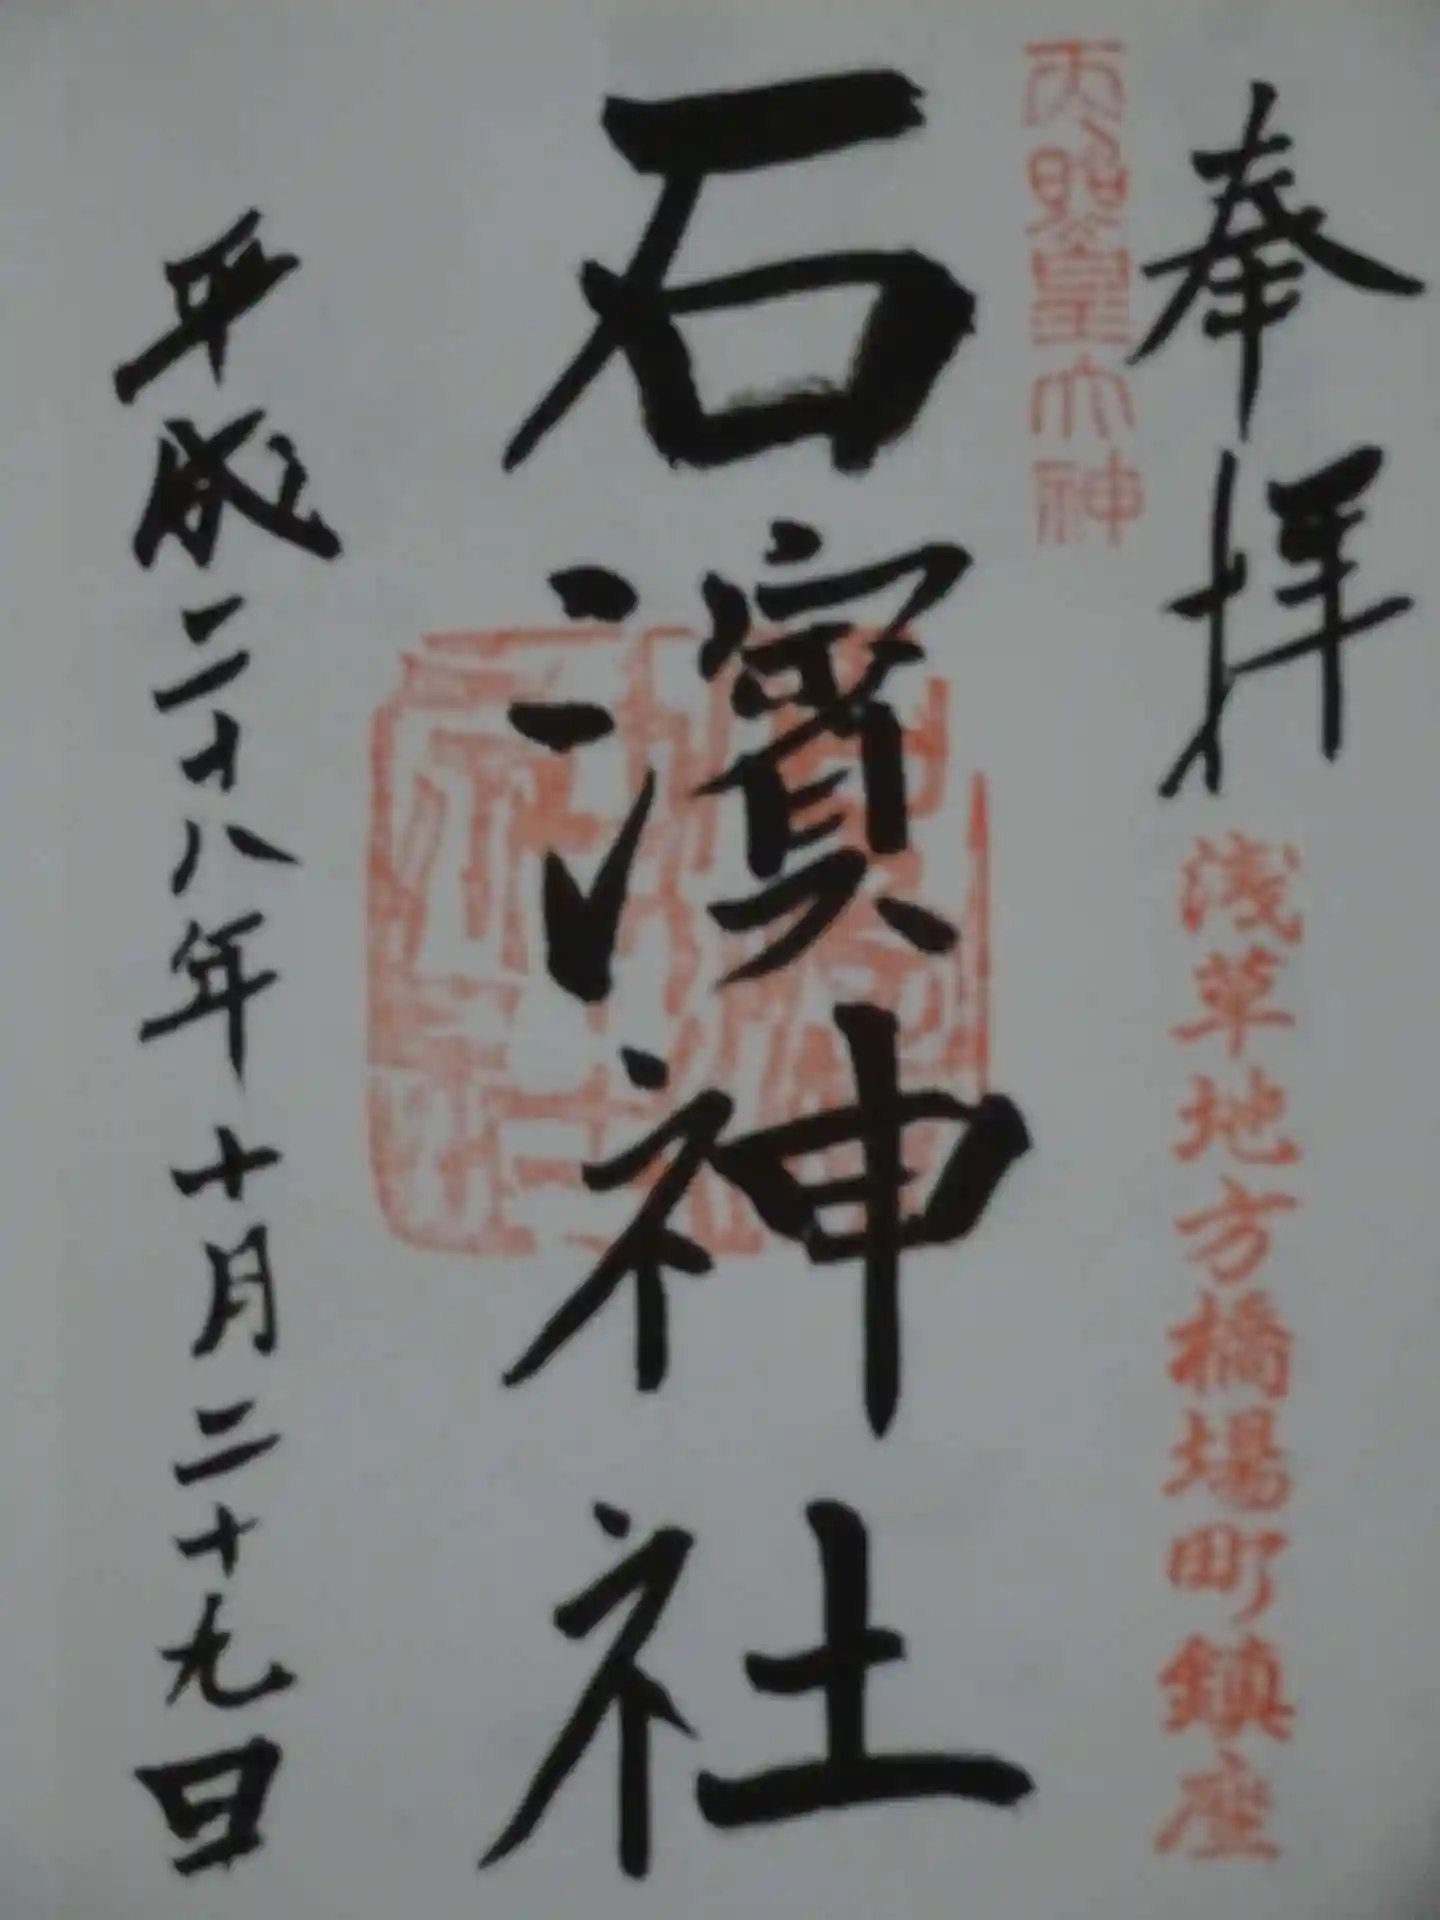 奉拝
浅草地方橋場町鎮座
天照皇大神
石濱神社
平成二十八年十月二十九日